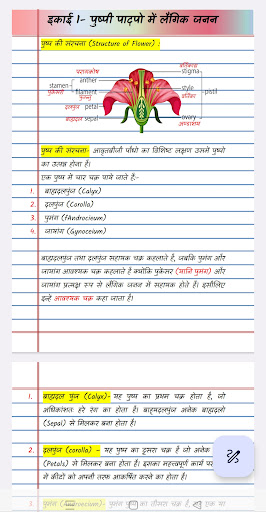 इकाई 1- पुष्पी पादपो में लैंगिक जनन
पुष्प की संरचना (Structure of Flower) :
परागकोष
anther
stamen
filament
पुंकेसर
पुतन्तु
दलपुंज petal
बाह्यदल sepal
वर्तिकाग्र
stigma
style
वर्तिका
pistil
ovary
अण्डाशय
पुष्प की संरचना- आवृतबीजी पौधो का विशिष्ट लक्षण उसमें पुष्पो
का उत्पन्न होना हैं।
एक पुष्प में चार चक्र पाये जाते हैं:-
1. बाह्यदलपुंज (Calyx)
2. दलपुंज (Corolla)
3. पुमंग (fAndrocieum)
4. जायांग (Gynoceium)
बाह्यदलपुंज तथा दलपुंज सहायक चक्र कहलाते हैं, जबकि पुमंग और
जायांग आवश्यक चक्र कहलाते हैं क्योंकि पुंकेसर (यानि पुमंग) और
जायांग प्रत्यक्ष रूप से लैंगिक जनन में सहायक होते हैं। इसीलिए
इन्हें आवश्यक चक्र कहा जाता हैं।
1. बाह्यदल पुंज (Calyx)- यह पुष्प का प्रथम चक्र होता हैं, जो
अधिकांशतः हरे रंग का होता हैं। बाह्यदलपुंज अनेक बाह्यदलो
(Sepal) से मिलकर बना होता हैं।
2. दलपुंज (corolla) – यह पुष्प का दुसरा चक्र हैं जो अनेक
(Petals) से मिलकर बना होता हैं। इसका महत्त्वपूर्ण कार्य
में कीटो को अपनी तरफ आकर्षित करने का होता हैं।
3. पुमंग (Androecieum)- पुमंग पुष्प का तीसरा चक्र हैं,